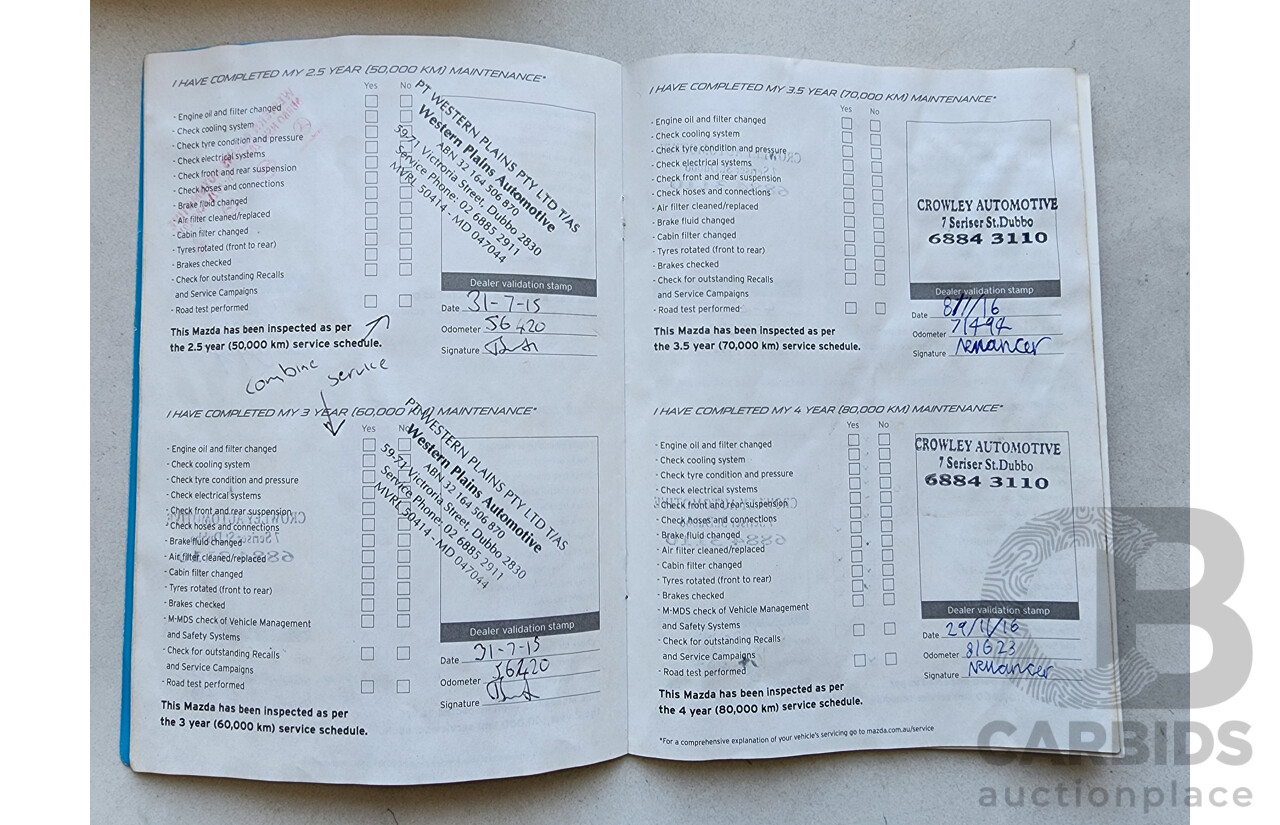 I HAVE COMPLETED MY 2.5 YEAR (50,000 KM) MAINTENANCE*
Yes No
- Engine oil and filter changed
- Check cooling system
- Check tyre condition and pressure
- Check electrical systems
- Check front and rear suspension
- Check hoses and connections
- Brake fluid changed
- Air filter cleaned/replaced
- Cabin filter changed
- Tyres rotated (front to rear)
- Brakes checked
- Check for outstanding Recalls
and Service Campaigns
- Road test performed
This Mazda has been inspected as per
the 2.5 year (50,000 km) service schedule.
PT WESTERN PLAINS PTY LTD T/AS
Western Plains Automotive
ABN 32 164 506 870
59-71 Victoria Street, Dubbo 2830
Service Phone: 02 6885 2911
MVRL 50414 - MD 047044
Dealer validation stamp
Date 31-7-15
Odometer 56420
Signature
combine service
I HAVE COMPLETED MY 3 YEAR (60,000 KM) MAINTENANCE*
Yes No
- Engine oil and filter changed
- Check cooling system
- Check tyre condition and pressure
- Check electrical systems
- Check front and rear suspension
- Check hoses and connections
- Brake fluid changed
- Air filter cleaned/replaced
- Cabin filter changed
- Tyres rotated (front to rear)
- Brakes checked
- M-MDS check of Vehicle Management
and Safety Systems
- Check for outstanding Recalls
and Service Campaigns
- Road test performed
This Mazda has been inspected as per
the 3 year (60,000 km) service schedule.
PT WESTERN PLAINS PTY LTD T/AS
Western Plains Automotive
ABN 32 164 506 870
59-71 Victoria Street, Dubbo 2830
Service Phone: 02 6885 2911
MVRL 50414 - MD 047044
Dealer validation stamp
Date 31-7-15
Odometer 56420
Signature
I HAVE COMPLETED MY 3.5 YEAR (70,000 KM) MAINTENANCE*
Yes No
- Engine oil and filter changed
- Check cooling system
- Check tyre condition and pressure
- Check electrical systems
- Check front and rear suspension
- Check hoses and connections
- Air filter cleaned/replaced
- Brake fluid changed
- Cabin filter changed
- Tyres rotated (front to rear)
- Brakes checked
- Check for outstanding Recalls
and Service Campaigns
- Road test performed
This Mazda has been inspected as per
the 3.5 year (70,000 km) service schedule.
CROWLEY AUTOMOTIVE
7 Seriser St.Dubbo
6884 3110
Dealer validation stamp
Date
Odometer 71494
Signature
I HAVE COMPLETED MY 4 YEAR (80,000 KM) MAINTENANCE*
Yes No
- Engine oil and filter changed
- Check cooling system
- Check tyre condition and pressure
- Check electrical systems
- Check front and rear suspension
- Check hoses and connections
- Brake fluid changed
- Air filter cleaned/replaced
- Cabin filter changed
- Tyres rotated (front to rear)
- Brakes checked
- M-MDS check of Vehicle Management
and Safety Systems
- Check for outstanding Recalls
and Service Campaigns
- Road test performed
This Mazda has been inspected as per
the 4 year (80,000 km) service schedule.
CROWLEY AUTOMOTIVE
7 Seriser St.Dubbo
6884 3110
Dealer validation stamp
Date 29/11/16
Odometer 81623
Signature
*For a comprehensive explanation of your vehicle's servicing go to mazda.com.au/service
CB
CARBIDS
auctionplace